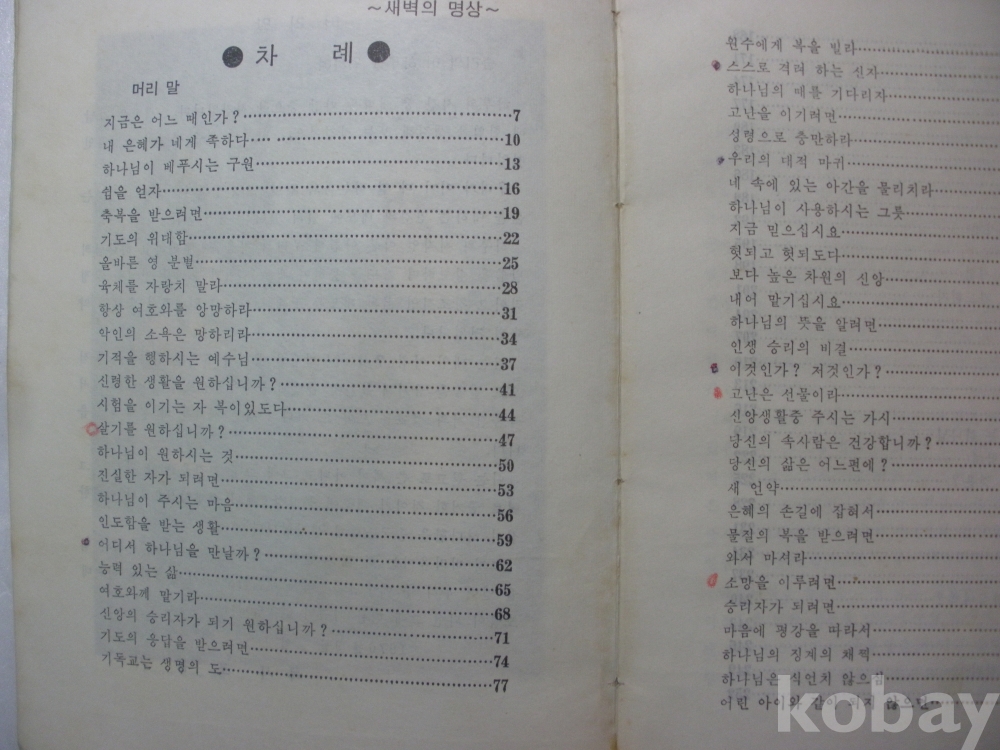 ~새벽의 명상~
●차 례●
머리 말
지금은 어느 때인가?······7
내 은혜가 네게 족하다······10
하나님이 베푸시는 구원······13
쉽을 얻자······16
축복을 받으려면······19
기도의 위대함······22
올바른 영 분별······25
육체를 자랑치 말라······28
항상 여호와를 앙망하라······31
악인의 소욕은 망하리라······34
기적을 행하시는 예수님······37
신령한 생활을 원하십니까?······41
시험을 이기는 자 복이있도다······44
살기를 원하십니까?······47
하나님이 원하시는 것······50
진실한 자가 되려면······53
하나님이 주시는 마음······56
인도함을 받는 생활······59
어디서 하나님을 만날까?······62
능력 있는 삶······65
여호와께 맡기라······68
신앙의 승리자가 되기 원하십니까?······71
기도의 응답을 받으려면······74
기독교는 생명의 도······77
원수에게 복을 빌라······
스스로 격려 하는 신자······
하나님의 때를 기다리자······
고난을 이기려면······
성령으로 충만하라······
우리의 대적 마귀······
네 속에 있는 아간을 물리치라······
하나님이 사용하시는 그릇······
지금 믿으십시요······
헛되고 헛되도다······
보다 높은 차원의 신앙······
내어 맡기십시요······
하나님의 뜻을 알려면······
인생 승리의 비결······
이것인가? 저것인가?······
고난은 선물이라······
신앙생활중 주시는 가시······
당신의 속사람은 건강합니까?······
당신의 삶은 어느편에?······
새 언약······
은혜의 손길에 잡혀서······
물질의 복을 받으려면······
와서 마셔라······
소망을 이루려면······
승리자가 되려면······
마음에 평강을 따라서······
하나님의 징계의 채찍······
하나님은 식언치 않으심······
어린 아이와 같이 되지 않으면······
kobay